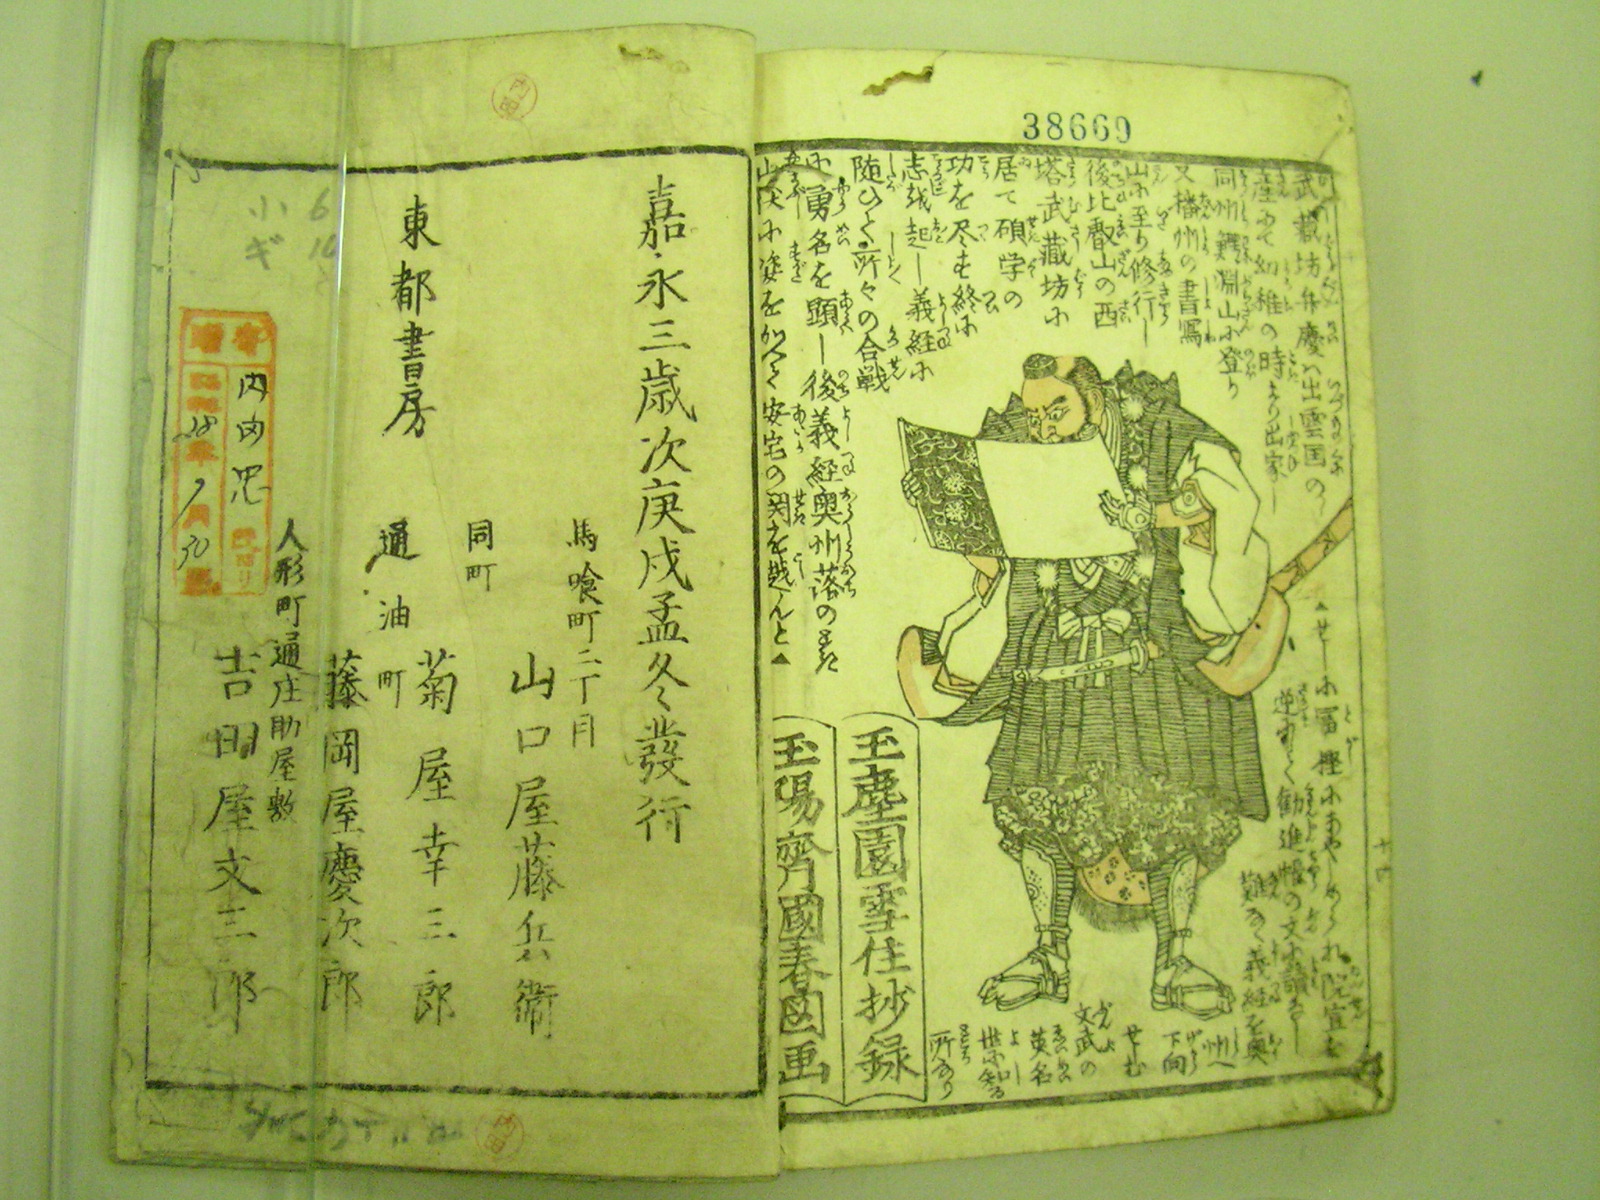 38669
武蔵坊弁慶ハ出雲国の
産にて幼稚の時より出家し
同州鰐淵山に登り
又播州の書寫
山に至り修行し
後比叡山の西
塔武蔵坊に
居て碩学の
功を尽も終に
志を起し義経に
随ひて所々の合戦
に勇名を顕し後義経奥州落の
山伏に姿をかへて安宅の関を越んと▲
▲せしに冨樫にあやしめられ院宣を
勧進帳の文に讀なし
難なく義経を奥
州へ
下向
せむ
文武の
英名
よし
世に知る
所なり
玉塵園雪住抄録
玉陽齊國春画
嘉永三歳次庚戌孟冬發行
東都書房
馬喰町二丁目
山口屋藤兵衛
同町
菊屋幸三郎
通油町
藤岡屋慶次郎
人形町通庄助屋敷
吉田屋文三郎